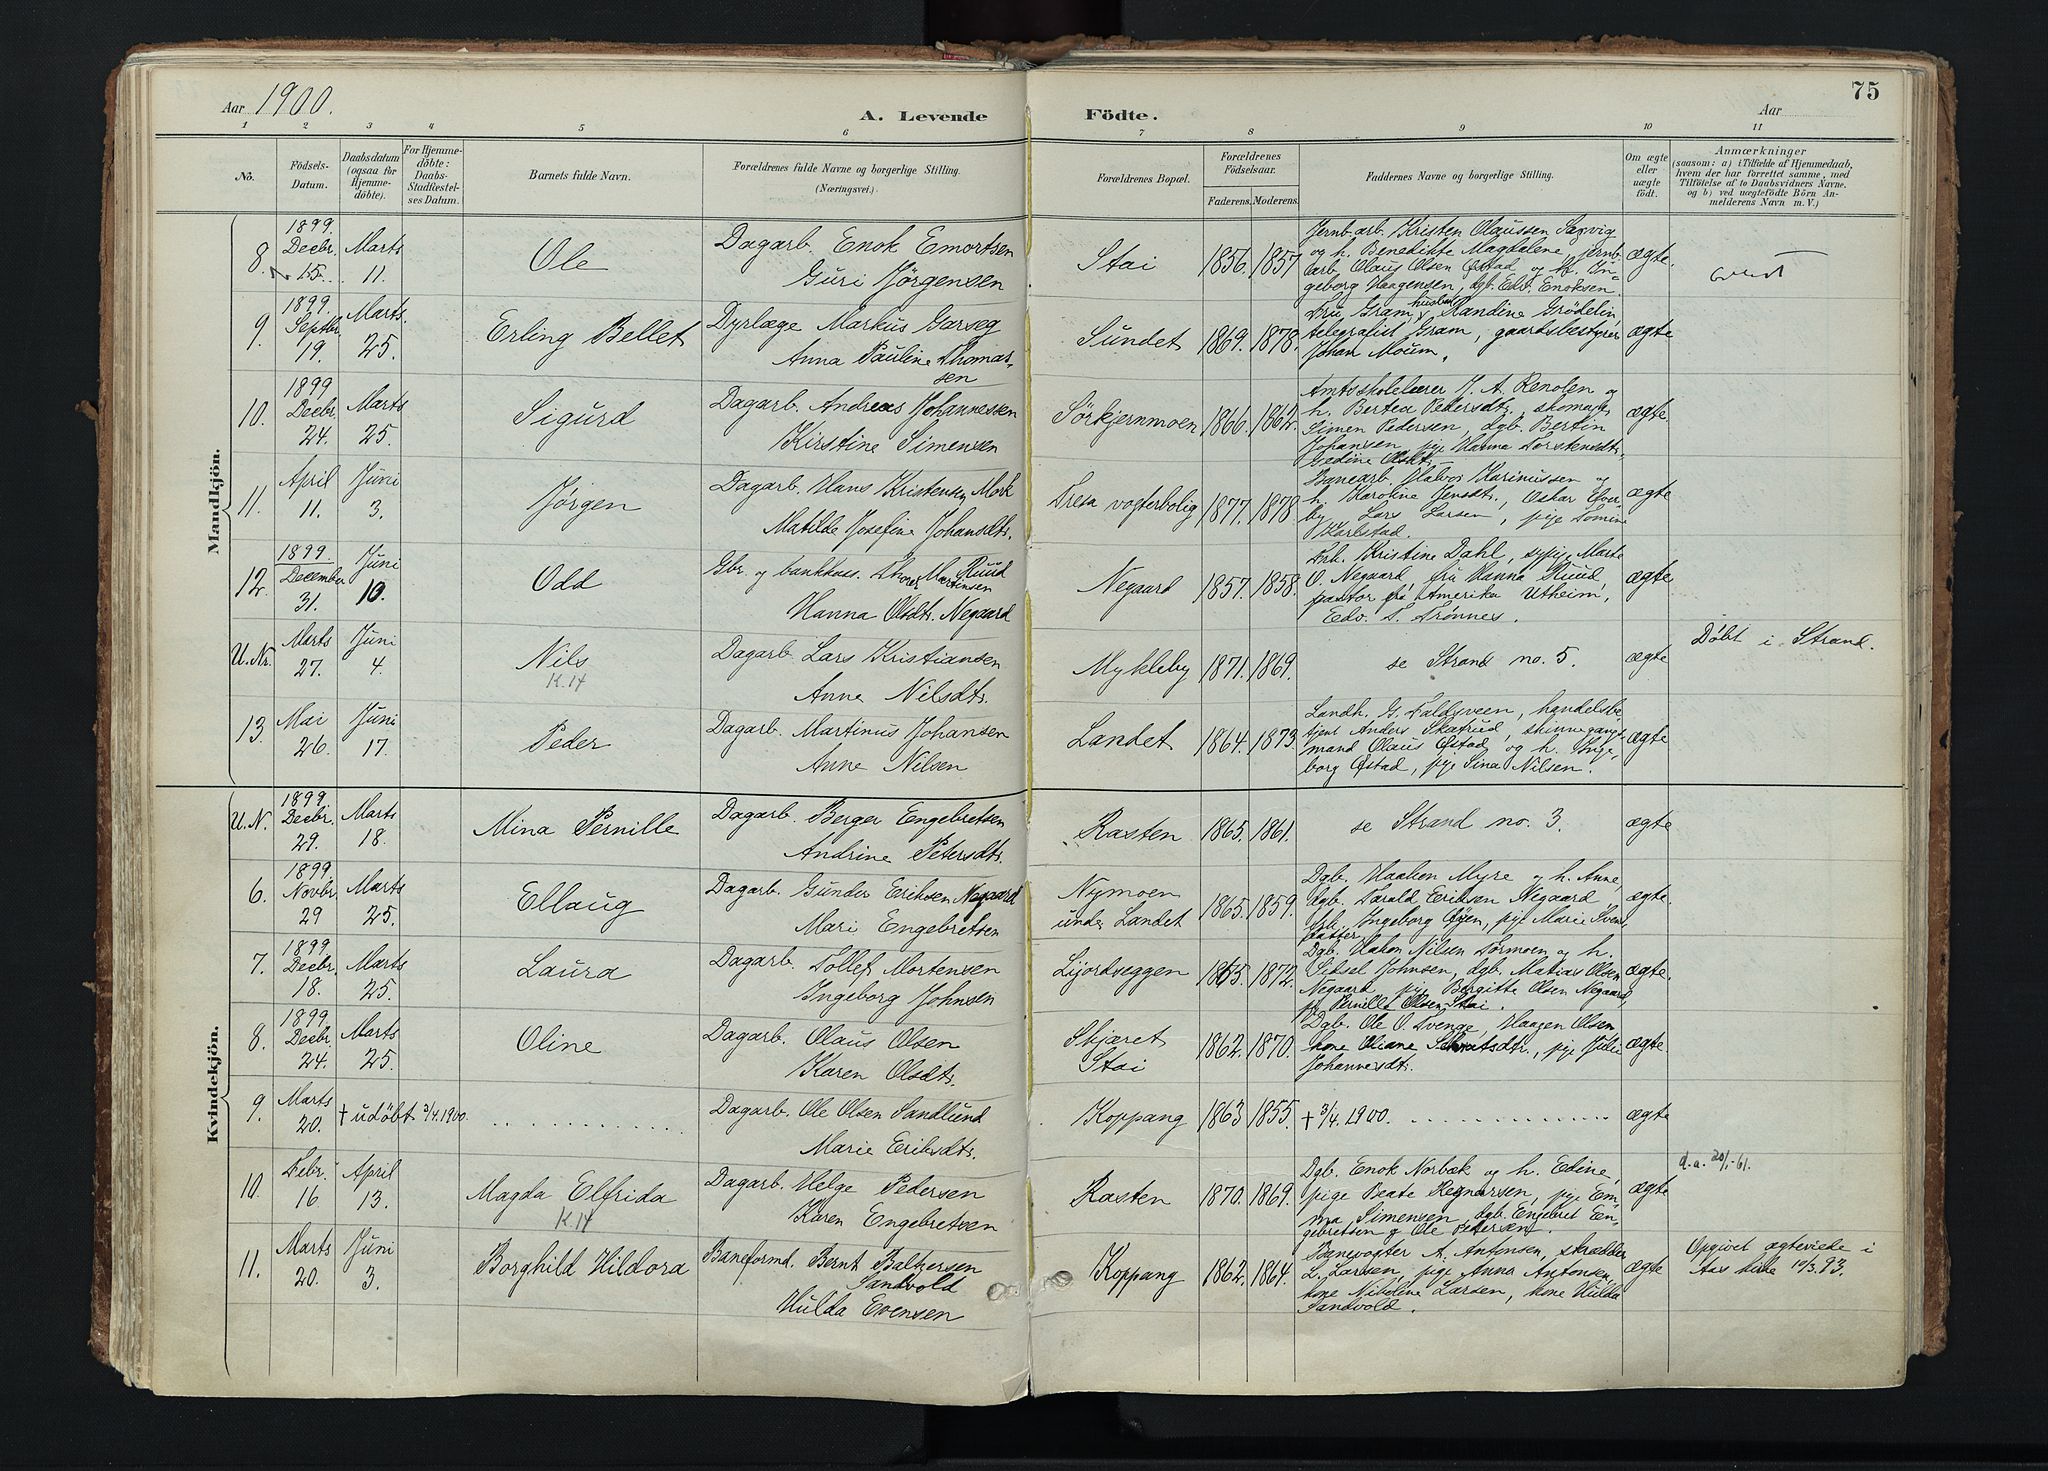 75
Aar 1900.
A. Levende Födte.
Aar
1 2 3 4 5 6 7 8 9 10 11
No.
Födsels-Datum.
Daabsdatum (ogsaa for Hjemmedöbte).
For Hjemmedöbte: Daabs-Stadfæstelses Datum.
Barnets fulde Navn.
Forældrenes fulde Navne og borgerlige Stilling.
(Næringsvei).
Forældrenes Bopæl.
Forældrenes Födselsaar.
Faderens. Moderens.
Faddernes Navne og borgerlige Stilling.
Om ægte eller uægte födt.
Anmærkninger
(saasom: a) i Tilfælde af Hjemmedaab, hvem der har forrettet samme, med Tilföielse af to Daabsvidners Navne, og b) ved uægtefödte Börn Anmelderens Navn m. V.)
Mandkjön.
8. 1899. Decbr. 15. Marts 11. Ole
Dagarb. Enok Emortsen
Guri Jørgensen
Stai 1856. 1857
Jernb.arb. Kristen Olaussen
og h. Benedikte Magdalene jernb.
arb. Olaus Olsen Østad og h. In-
geborg Haagensen, dgb. Edv. Enoksen
ægte.
9. 1899. Septbr. 19. Marts. 25. Erling Bellet
Dyrlæge Markus Garseg
Anna Pauline Thomas-
sen
Sundet 1869. 1878.
Fru Gram, Randine Grödelin
telegrafist Gram, gaardsbestyrer
Johan Moum.
ægte
10. 1899 Decbr. 24. Marts 25. Sigurd
Dagarb. Andreas Johannessen
Kirstine Simensen
Sörkjernmoen 1866. 1862.
Amtsskolelærer J. A. Renolen og
h. Bertea Pedersdtr., skomager
Simen Pedersen, dgb. Bertin
Johansen, pige Hanna Torstensdtr.
Gedine Olsdtr.
ægte.
11. April 11. Juni 3. Jørgen
Dagarb. Hans Kristensen Mork
Matilde Josefine Johansdtr.
Tresa vogterbolig 1877. 1878
Banearb. Halvor Karinussen og
h. Karoline Jensdtr., Oskar
by Lars Larsen, pige
Karlstad.
ægte
12. 1899. December 31. Juni 10. Odd
Gbr. og bankkass. Thorer Martinsen Ruud
Hanna Olsdtr. Negaard
Negaard 1857. 1858.
Frk. Kristine Dahl, sypige Marte
O. Negaard, fru Hanna Ruud,
pastor fra Amerika Utheim,
Edv. T. Trønnes.
ægte
U. Nr. Marts 27. Juni 4. Nils
K. 14
Dagarb. Lars Kristiansen
Anne Nilsdtr.
Mykleby 1871. 1869.
se Strand no. 5.
ægte
Døbt i Strand.
13. Mai 26. Juni 17. Peder
Dagarb. Martinus Johansen
Anne Nilsen
Landet 1864. 1873.
Landh. G. Faldsveen, handelsbe-
tjent Anders Skatrud, skinnegangs-
mand Olaus Østad og h. Inge-
borg Østad, pige Sina Nilsen.
ægte
Kvindekjön.
U. N. 1899 Decbr. 29. Marts 18. Mina Pernille
Dagarb. Berger Engebretsen
Andrine Petersdtr.
Rasten 1865. 1861.
se Strand no. 3.
ægte
6. 1899. Novbr. 29 Marts 25. Ellaug
Dagarb. Gunder Eriksen Negaard
Mari Engebretsen
Nymoen
under Landet
1865. 1859.
Dgb. Haaken Myre og h. Anne,
dgb. Tarald Eriksen Negaard
Ingeborg Øien, pige Marie Svens-
datter
ægte.
7. 1899 Decbr. 18. Marts 25. Laura
Dagarb. Tollef Mortensen
Ingeborg Johnsen
Lijordseggen 1865. 1872.
Dgb. Hakon Nilsen Tørmoen og h.
Sidsel Johnsen, dgb. Matias Olsen
Negaard pige Bergitte Olsen Negaard,
pige Pernille Olsen Stai.
ægte.
8. 1899 Decbr. 24. Marts 25. Oline
Dagarb. Olaus Olsen
Karen Olsdtr.
Skjæret
Stai
1862. 1870.
Dgb. Ole O. Tvenge, Haagen Olsen
kone Oliane pige Julie
Johannesdtr.
ægte.
9. Marts 20. † udöbt 3/4. 1900.
Dagarb. Ole Olsen Sandlund
Marie Eriksdtr.
Koppang 1863 1855.
† 3/4. 1900.
ægte
10. Febr. 16 April 13. Magda Elfrida
K. 14
Dagarb. Helge Pedersen
Karen Engebretsen
Rasten 1870. 1869.
Dgb. Enok Norbæk og h. Edine,
pige Beate Regnarsen, pige Em-
ma Simensen, dgb. Engebret En-
gebretsen og Ole Pettersen.
ægte
d. a. 20/1.-61.
11. Marts 20. Juni 3. Borghild Hildora
Baneformd. Bernt Baltzersen
Sandvold
Hulda Evensen
Koppang 1862. 1864.
Banevogter A. Antonsen, skrædder
L. Larsen, pige Anna Antonsen
kone Nikoline Larsen, kone Hulda
Sandvold.
ægte
Opgivet ægteviede i
Aas kirke 10/3.93.